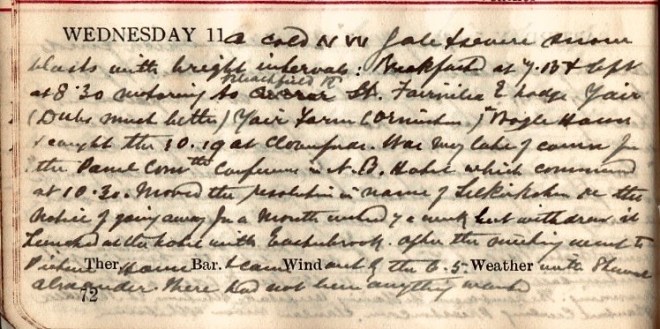 WEDNESDAY 11 a cold N W gale & severe snow
blasts with bright intervals: Breakfasted at 7.15 & left
at 8.30 motoring to St. Fairnilee E Lodge Yair
(Dubs much better) Yair Farm (Ormiston) Bogle
caught the 10.19 at Clovenfords. Was very late of course for
the Panel Com Conference in N.B. Hotel which commenced
at 10.30. Moved the resolution in name of Selkirkshire re the
Notice of going away for a Month instead of a week but withdrew it
Lunched at the hotel with Easterbrook. After the meeting went to
Ther. Bar. & came Wind out by the 6.5 Weather with
Alexander. There had not been anything
72